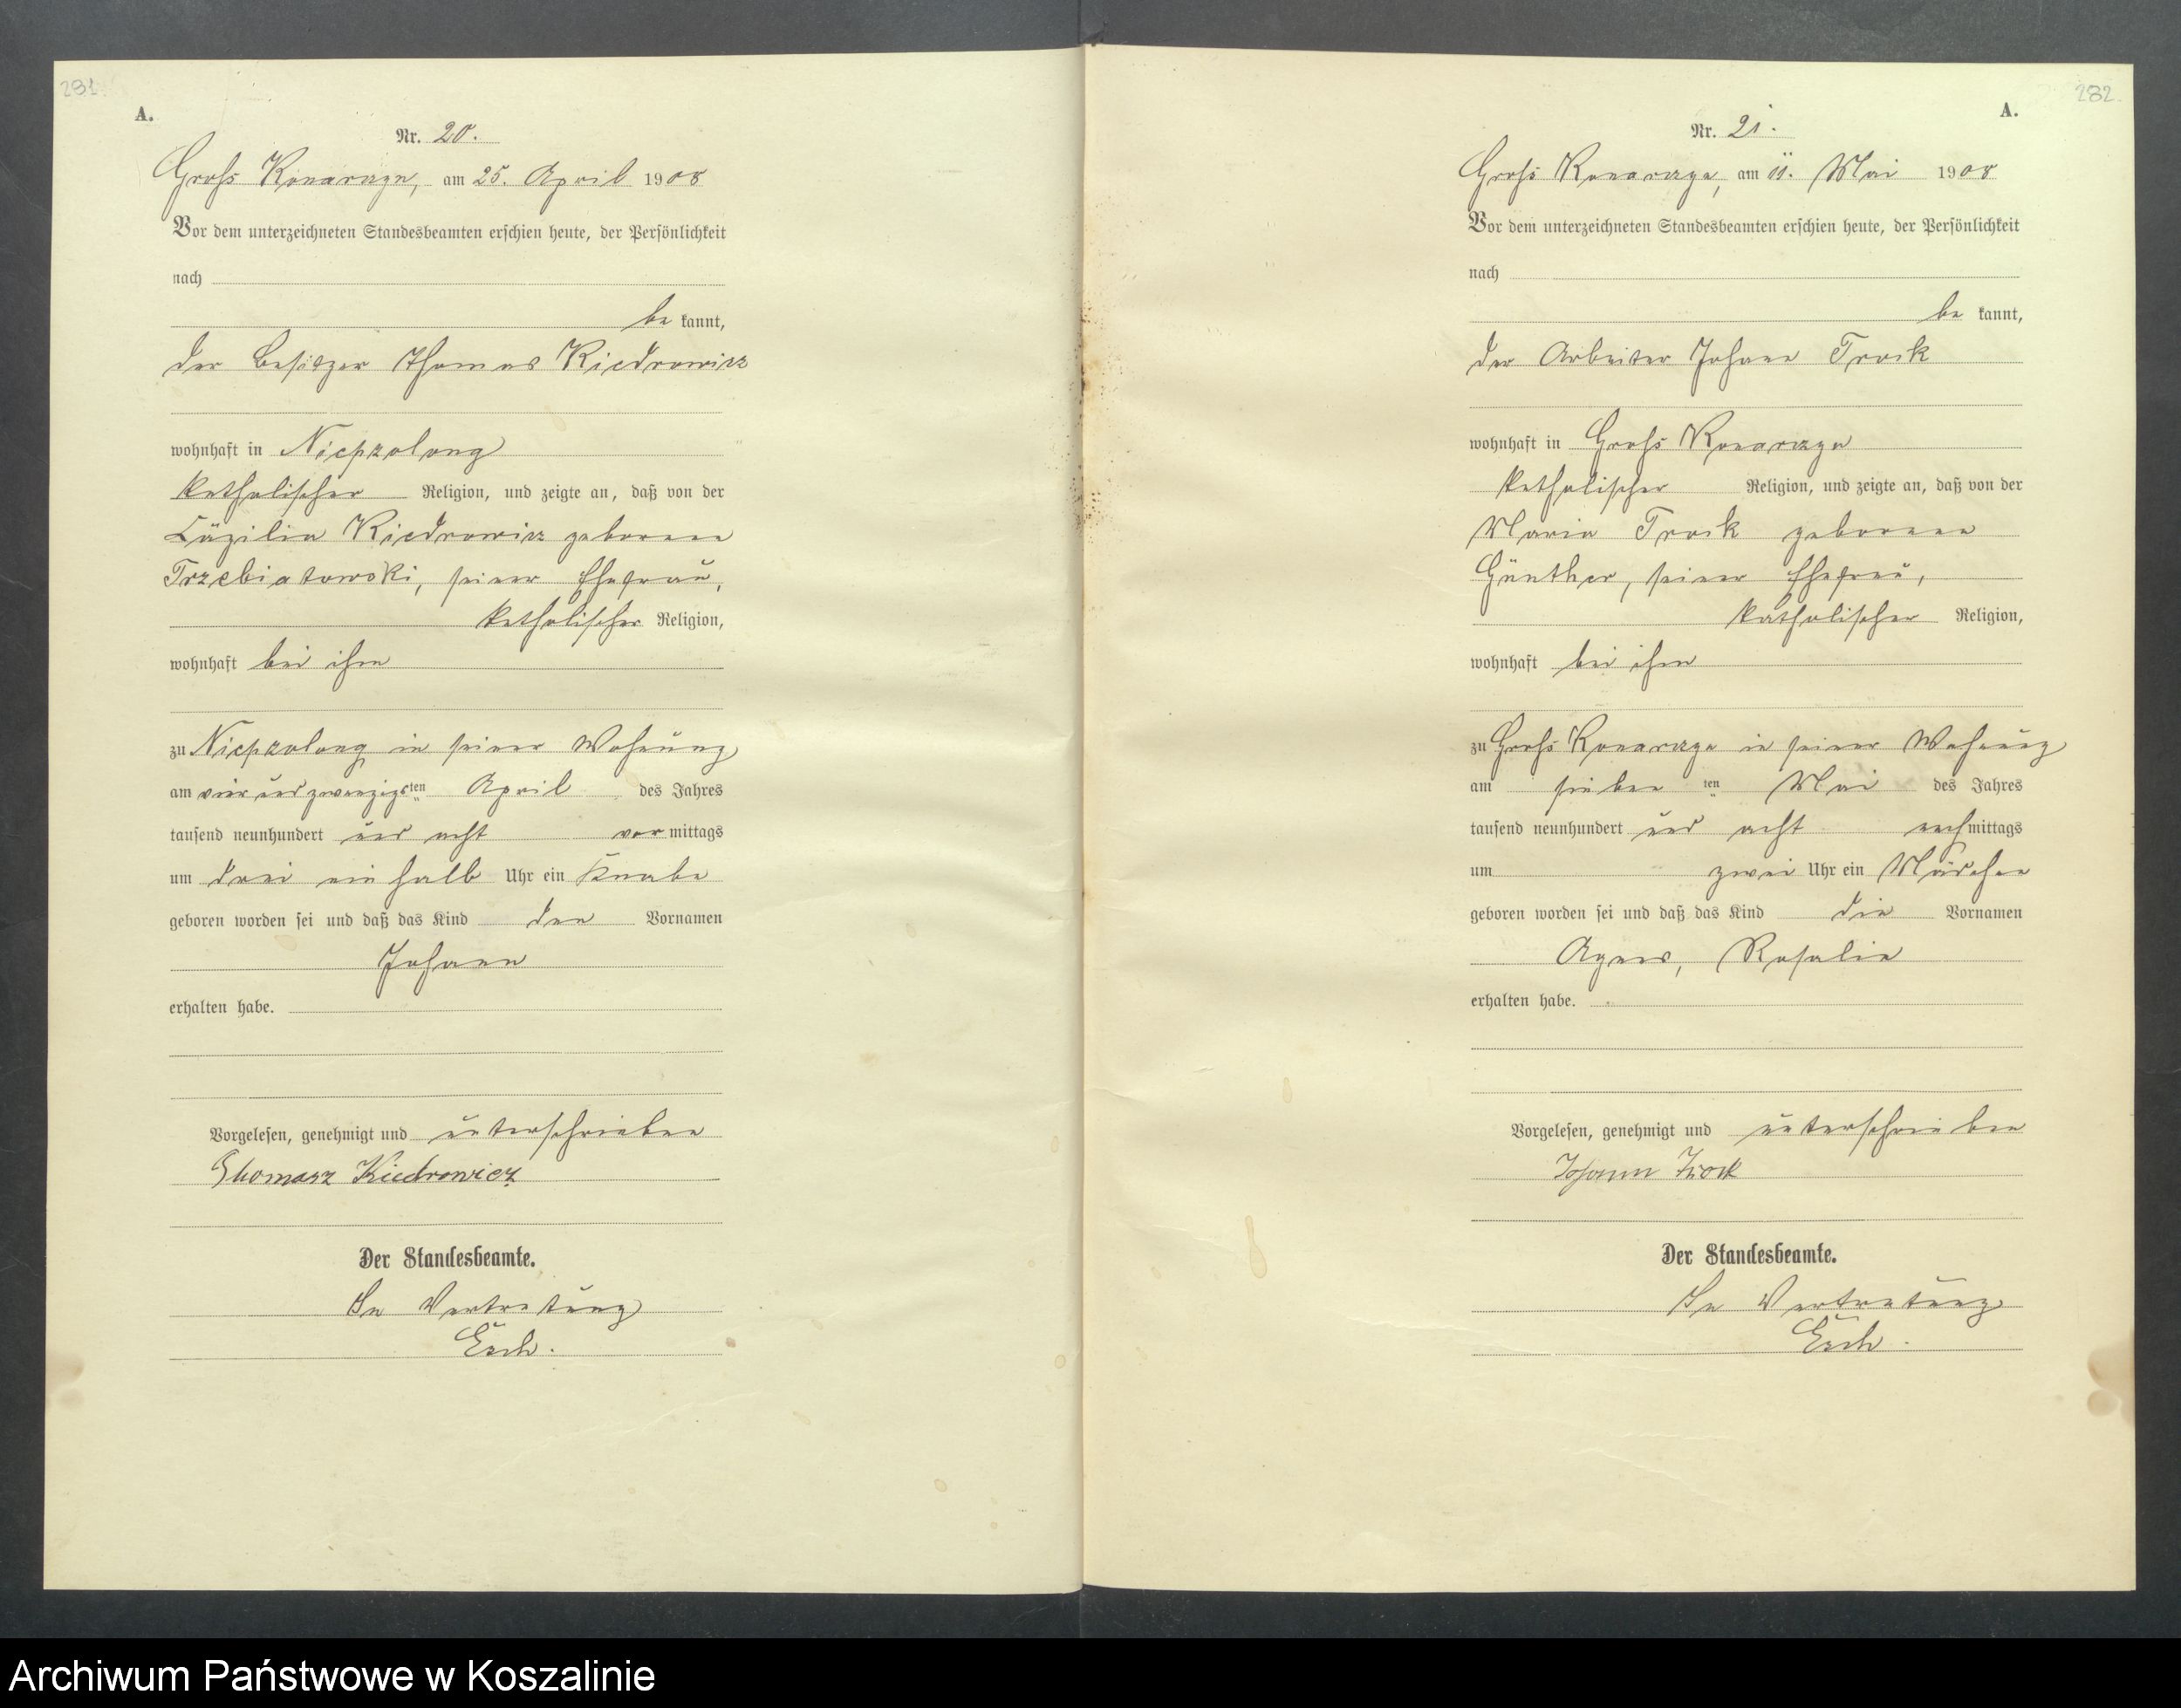 281.
A.
Nr. 20.
Gross Konarczyn, am 25. April 1908
Vor dem unterzeichneten Standesbeamten erschien heute, der Persönlichkeit
nach
be kannt,
der Besitzer Thomas Kiedrowicz
wohnhaft in Niepzolong
katholischer Religion, und zeigte an, daß von der
Cäzilia Kiedrowicz geborene
Trzebiatowski, seiner Ehefrau,
katholischer Religion,
wohnhaft bei ihm
zu Niepzolong in seiner Wohnung
am vier und zwanzigsten April des Jahres
tausend neunhundert und acht vor mittags
um drei ein halb Uhr ein Knabe
geboren worden sei und daß das Kind den Vornamen
Johann
erhalten habe.
Vorgelesen, genehmigt und unterschrieben
Thomasz Kiedrowicz
Der Standesbeamte.
In Vertretung
Esch.
282.
A.
Nr. 21.
Gross Konarczyn, am 11. Mai 1908
Vor dem unterzeichneten Standesbeamten erschien heute, der Persönlichkeit
nach
be kannt,
der Arbeiter Johann Trock
wohnhaft in Gross Konarczyn
katholischer Religion, und zeigte an, daß von der
Maria Trock geborene
Günther, seiner Ehefrau,
katholischer Religion,
wohnhaft bei ihm
zu Gross Konarczyn in seiner Wohnung
am sieben ten Mai des Jahres
tausend neunhundert und acht nach mittags
um zwei Uhr ein Mädchen
geboren worden sei und daß das Kind die Vornamen
Agnes, Rosalie
erhalten habe.
Vorgelesen, genehmigt und unterschrieben
Johann Trock
Der Standesbeamte.
In Vertretung
Esch.
Archiwum Państwowe w Koszalinie